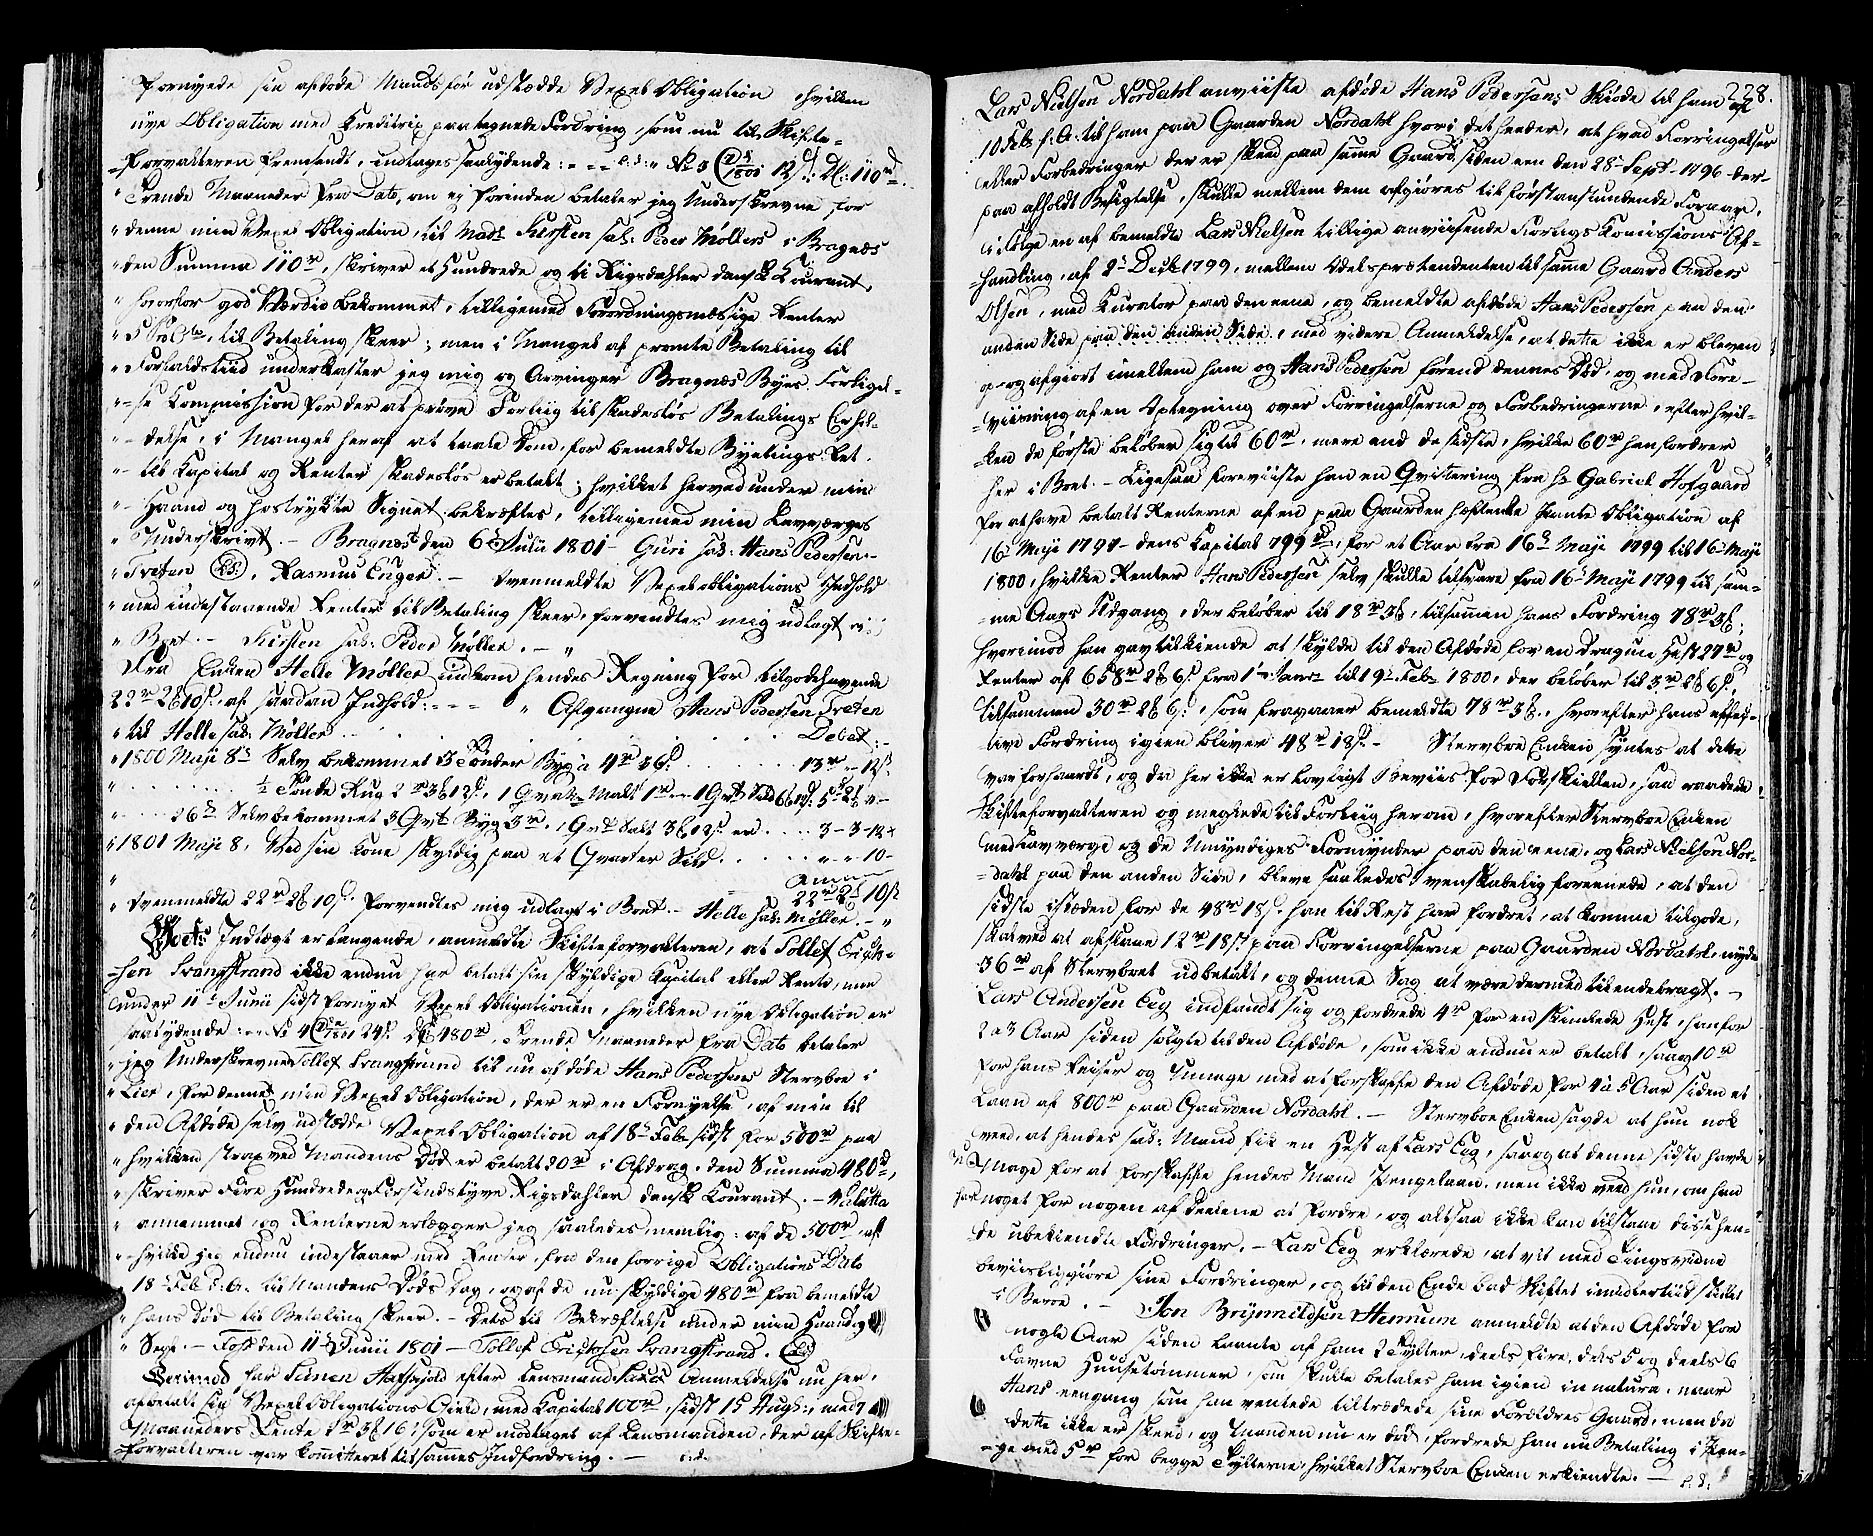 fornyede sin afdøde Mands før udstædde Vexel Obligation, hvilken
nye Obligation med Kreditrix paategnede Fordring, som nu til Skifte-
-forvalteren fremsendt, indtages saalydende: 12 s. Dl: 110 rd.
" Trende Maaneder fra Dato, om ej forinden betaler jeg Underskrevne for
" denne min Vexel Obligation, til Mad: Kirsten sal: Peder Møllers i Bragnæs
" den Summa 110 rd, skriver et Hundrede og ti Rigsdahler dansk Courant,
" hvorfor god Værdie bekommet, tilligemed Forordningsmæssige Renter
" 5 Pro Cto, til Betaling skeer; men i Mangel af promte Betaling til
" Forfaldstiid underkaster jeg mig og Arvinger Bragnæs Byes Forligel-
"-se Kommission for der at prøve Forliig til skadesløs Betalings Erhol-
"-delse, i Mangel heraf at taale Dom, for bemeldte Byetings Ret,
"- til Kapital og Renter skadesløs er betalt; hvilket herved under min
"- Haand og hostrykte Signet bekræftes, tilligemed min Lavværges
" Underskrivt. - Bragnæs den 6 Julii 1801 - Guri sal: Hans Pedersen
" Treten (LS). Rasmus Enger. - Ovenmeldte Vexelobligations Indhold
" med indestaaende Renter til Betaling skeer, forventes mig udlagt i
" Boet. - Kirsten sal: Peder Møller. - "
Fra Enken Helle Møller indkom hendes Regning for tilgodehavende
22 rd 2 ß 10 s, af saadan Indhold: - - - " Afgangne Hans Pedersen Treten
" til Helle sal: Møller . . . . Debet: -
" 1800 Maji 8de Selv bekommet 3 Tønder Byg a 4 rd 36 s. . . . 13 rd - 12 s.
" . . . . ½ Tønde Rug 2 rd 3 ß 12 s, 1 Qvart Malt 1 rd
" . . . 26de Selv bekommet 3 Qvt Byg 3 rd, 1 Qvt Salt 3 ß 12 s er . . . . 3 - 3 - 12
" 1801 Maji 8, Ved sin Kone skyldig paa et Qvarter Sild . . . . " - " - 10 -
" Summa 22 rd 2 ß 10 s
" Ovenmeldte 22 rd 2 ß 10 s forventes mig udlagt i Boet. - Helle sal: Møller - "
Boets Indtægt erlangende, anmeldte Skifteforvalteren, at Tollef Christo-
-hen Svangstrand ikke endnu har betalt sin skyldige Kapital eller Rente, men
under 11te Junii sidst fornyet Vexel Obligationen, hvilken nye Obligation er
saalydende: 24 s. 480 rd, Trende Maaneder fra Dato betaler
" jeg Underskrevne Tollef Svangstrand til nu afdøde Hans Pedersens Stervboe i
" Lier, for denne min Vexel Obligation, der er en Fornyelse, af min til
" den Afdøde selv udstædde Vexel Obligation af 18de Febr sidst for 500 rd paa
" hvilken strax ved Mandens Død er betalt 20 rd i Afdrag, den Summa 480 rd,
" skriver Fire Hundrede og Firsindstyve Rigsdahler dansk Courant. - Valutta
" annammet, og Renterne erlægger jeg saaledes, nemlig: af de 500 rd, af
" hvilke jeg endnu indestaaer med Renter, fra den forrige Obligations Dato
" 18 Feb: s: A: til Mandens Døds Dag, og af de nu skyldige 480 rd fra bemeldte
" hans Død til Betaling skeer. - Dets til Bekræftelse under min Haand og
" Segl. - Foss den 11te Junii 1801 - Tollef Christofen Svangstrand. (LS)
Derimod har Simen Hafsiold efter Lensmand Anmeldelse nu her,
afbetalt sin Vexel Obligations Gield, med Kapital 100 rd, sidst 15 Aug:, med 7
Maaneders Rente 16 s, som er modtaget af Lensmanden, der af Skifte-
-forvalteren var kommitteret til sammes Indfordring. -
228.
Lars Nielsen Nordahl anviiste afdøde Hans Pedersens Skiøde til ham af
10 Febr f: A: til ham paa Gaarden Nordahl hvori det heeder, at hvad Forringelser
eller Forbedringer der er skeed paa samme Gaard, siden een den 28de Sept 1796 der-
paa afholdt Besigtelse, skulle mellem dem afgiøres til førstanstundende Foraar,
i følge en af bemeldte Lars Nielsen tillige anviisende Forligs Komissions Af-
-handling, af 2de Decbr 1799, mellem Odelsprætendenten til samme Gaard Anders
Olsen, med Kurator paa den eene, og bemeldte afdøde Hans Pedersen paa den
anden Side paa den anden Side, med videre Anmeldelse, at dette ikke er bleven
og afgiort imellem ham og Hans Pedersen førend dennes Død, og med Fore-
-viisning af en Optegning over Forringelserne og Forbedringerne, efter hvil-
-ken de første beløber sig til 60 rd, mere end de sidste, hvilke 60 rd han fordrer
her i Boet. - Ligesaa foreviiste han en Qvittering fra Hr Gabriel Hofgaard
for at have betalt Renterne af en paa Gaarden hæftende Pante Obligation af
16 Maji 1797 - dens Kapital 799 rd, for et Aar fra 16de Maji 1799 til 16 Maji
1800, hvilke Renter Hans Pedersen selv skulle tilsvare fra 16de Maji 1799 til sam-
-me Aars Udgang, der beløber til 18 rd 3 ß, tilsammen hans Fordring 78 rd 3 ß;
hvorimod han gav tilkiende at skylde til den Afdøde for en Dragun Hest 27 rd og
Renter af 658 rd 2 ß 6 s fra 1te Janr til 19de Febr 1800, der beløber til 3 rd 2 ß 6 s,
tilsammen 30 rd 2 ß 6 s, som fragaaer bemeldte 78 rd 3 ß, hvorefter hans effec-
-tive Fordring igien bliver 48 rd 18 s. - Stervboe Enken syntes at dette
var for haardt, og da her ikke er lovligt Beviis for Forskiellen, saa raadede
Skifteforvalteren og meglede til Forliig herom, hvorefter Stervboe Enken
med Lavværge og de Umyndiges Formynder paa den eene, og Lars Nielsen Nor-
-dahl paa den anden Side, bleve saaledes venskabelig foreenede, at den
sidste istæden for de 48 rd 18 s. han til Rest har fordret, at komme tilgode,
skal ved at afstaae 12 rd 18 s. paa Forringelserne paa Gaarden Nordahl, nyde
36 rd af Stervboet udbetalt, og denne Sag at være dermed tilendebragt. -
Lars Andersen Eeg indfandt sig og fordrede 4 rd for en skimlede Hest, han for
2 a 3 Aar siden solgte til den Afdøde, som ikke endnu er betalt, saa og 10 rd
for hans Reiser og Umage med at forskaffe den Afdøde for 4 a 5 Aar siden et
Laan af 800 rd paa Gaarden Nordahl. - Stervboe Enken sagde at hun nok
veed, at hendes sal: Mand fik en Hest af Lars Eeg, saa og at denne sidste havde
Umage for at forskaffe hendes Mand Pengelaan, men ikke veed hun, om han
har noget for nogen af Deelene at fordre, og altsaa ikke kan tilstaae disse hen-
de ubekiendte Fordringer. - Lars Eeg erklærede, at vil med Tingsvidne
beviisliggiøre sine Fordringer, og til den Ende bad Skiftet imidlertiid stillet
i Beroe. - Jon Brynnildsen Hennum anmeldte at den Afdøde for
nogle Aar siden laante af ham 2 Tylter, deels fire, deels 5 og deels 6
Favne Huusetømmer, som skulle betales ham igien in natura, naar
Hans eengang som han ventede tiltrædede sine Forældres Gaard, men da
dette ikke er skeed, og Manden nu er død, fordrede han nu Betaling i Pen-
-ge med 5 rd for begge Tylterne, hvilket Stervboe Enken erkiendte. -